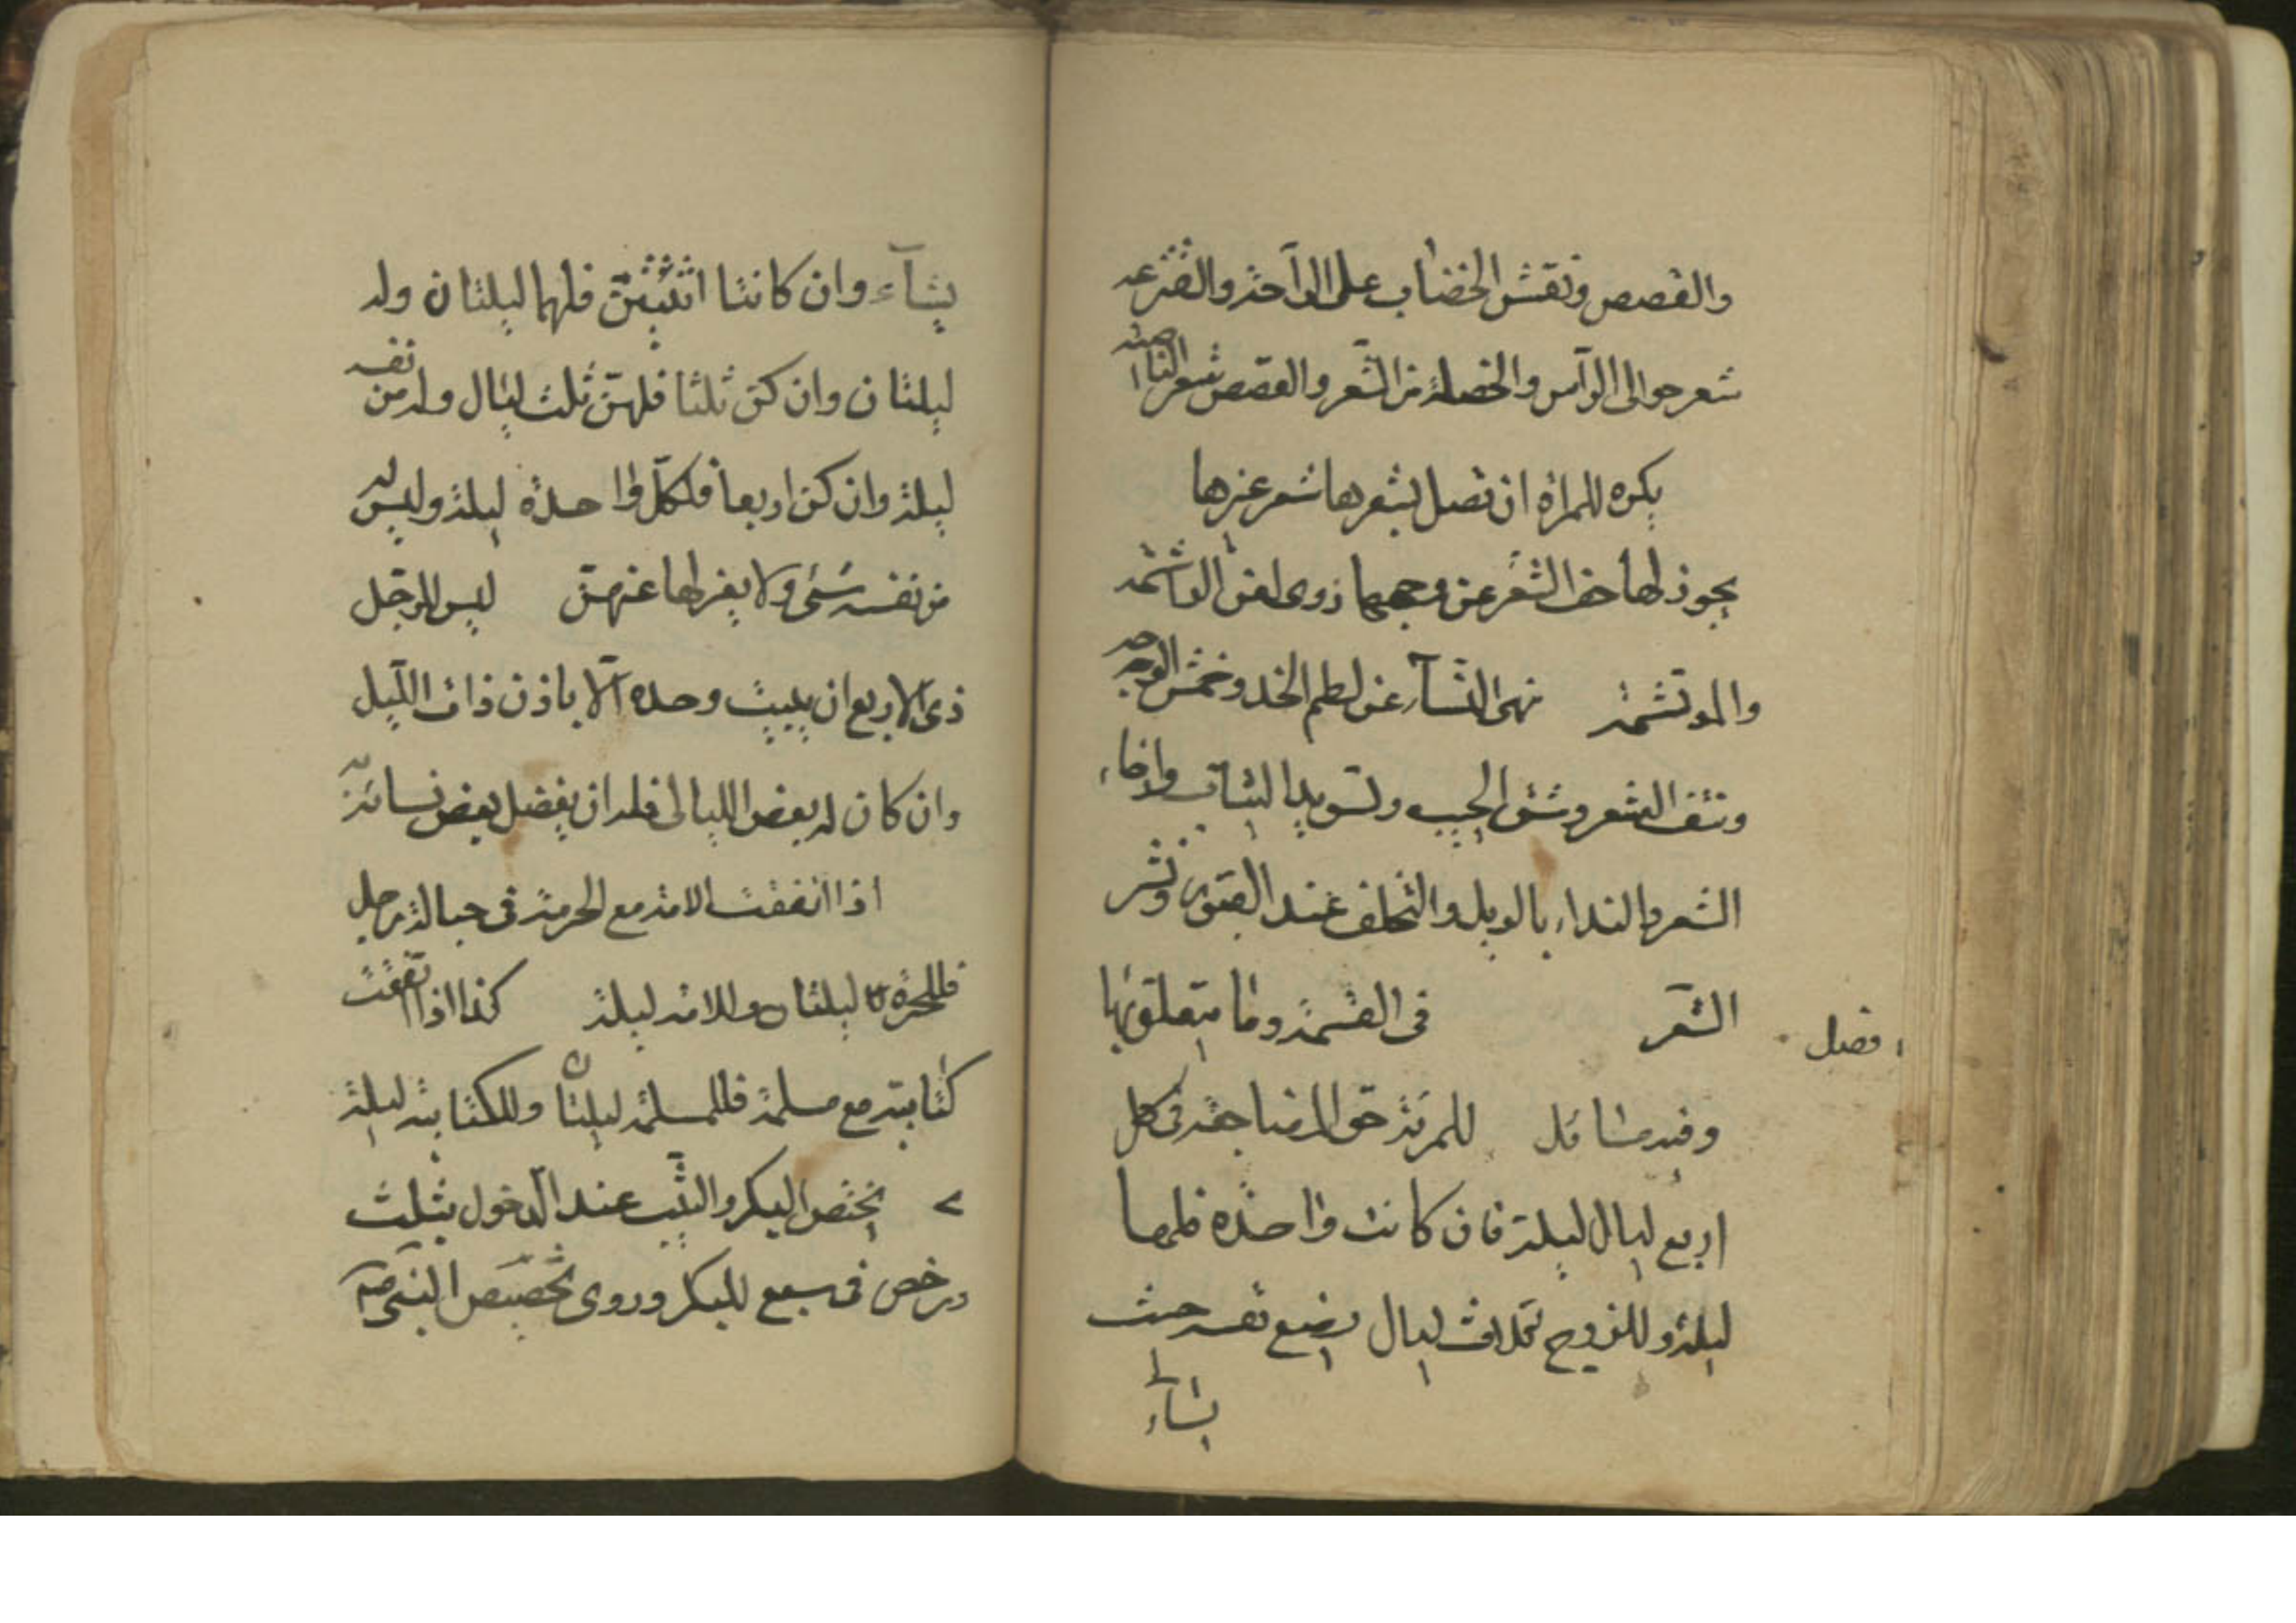 والقصص ونقش الخضاب على الراحة والقنزعه
شعر حوالى الرأس والخصلة من الشعر والقصص شعر الناصية
يكره للمراة ان تصل بشعرها شعر غيرها
يجوز لها حف الشعر عن وجهها روى لعن الواشمة
والموتشمة نهى النسآء عن لطم الخد وخمش الوجه
ونتف الشعر وشق الجيب وتسويد الثياب وارخاء
الشعر والنداء بالويل والتخلف عند القبور ونشر
الشعر فى القسمة وما يتعلق بها
فصل
وفيه مسائل للمرئة حق المضاجعة فى كل
اربع ليال ليلة فان كانت واحدة فلها
ليلة وللزوج ثلاث ليال يضع نفسه حيث
يشاء
يشآء وان كانتا اثنتين فلهما ليلتان وله
ليلتان وان كن ثلثا فلهن ثلث ليال وله من نفسه
ليلة وان كن اربعا فلكل واحدة ليلة وليس له
من نفسه شىء ولا يغيرلها عنهن ليس للرجل
ذى الاربع ان يبيت وحده الا باذن ذات الليل
وان كان له بعض الليالى فله ان يفضل بعض نسائه
اذا اتفقت الامة مع الحرة فى حبالة رجل
فللحرة ليلتان وللامة ليلة كذا اذا اتفقت
كتابية مع مسلمة فللمسلمة ليلتان وللكتابية ليلة
يختص البكر والثيب عند الدخول بثلث
ورخص فى سبع للبكر وروى تخصيص النبى ص